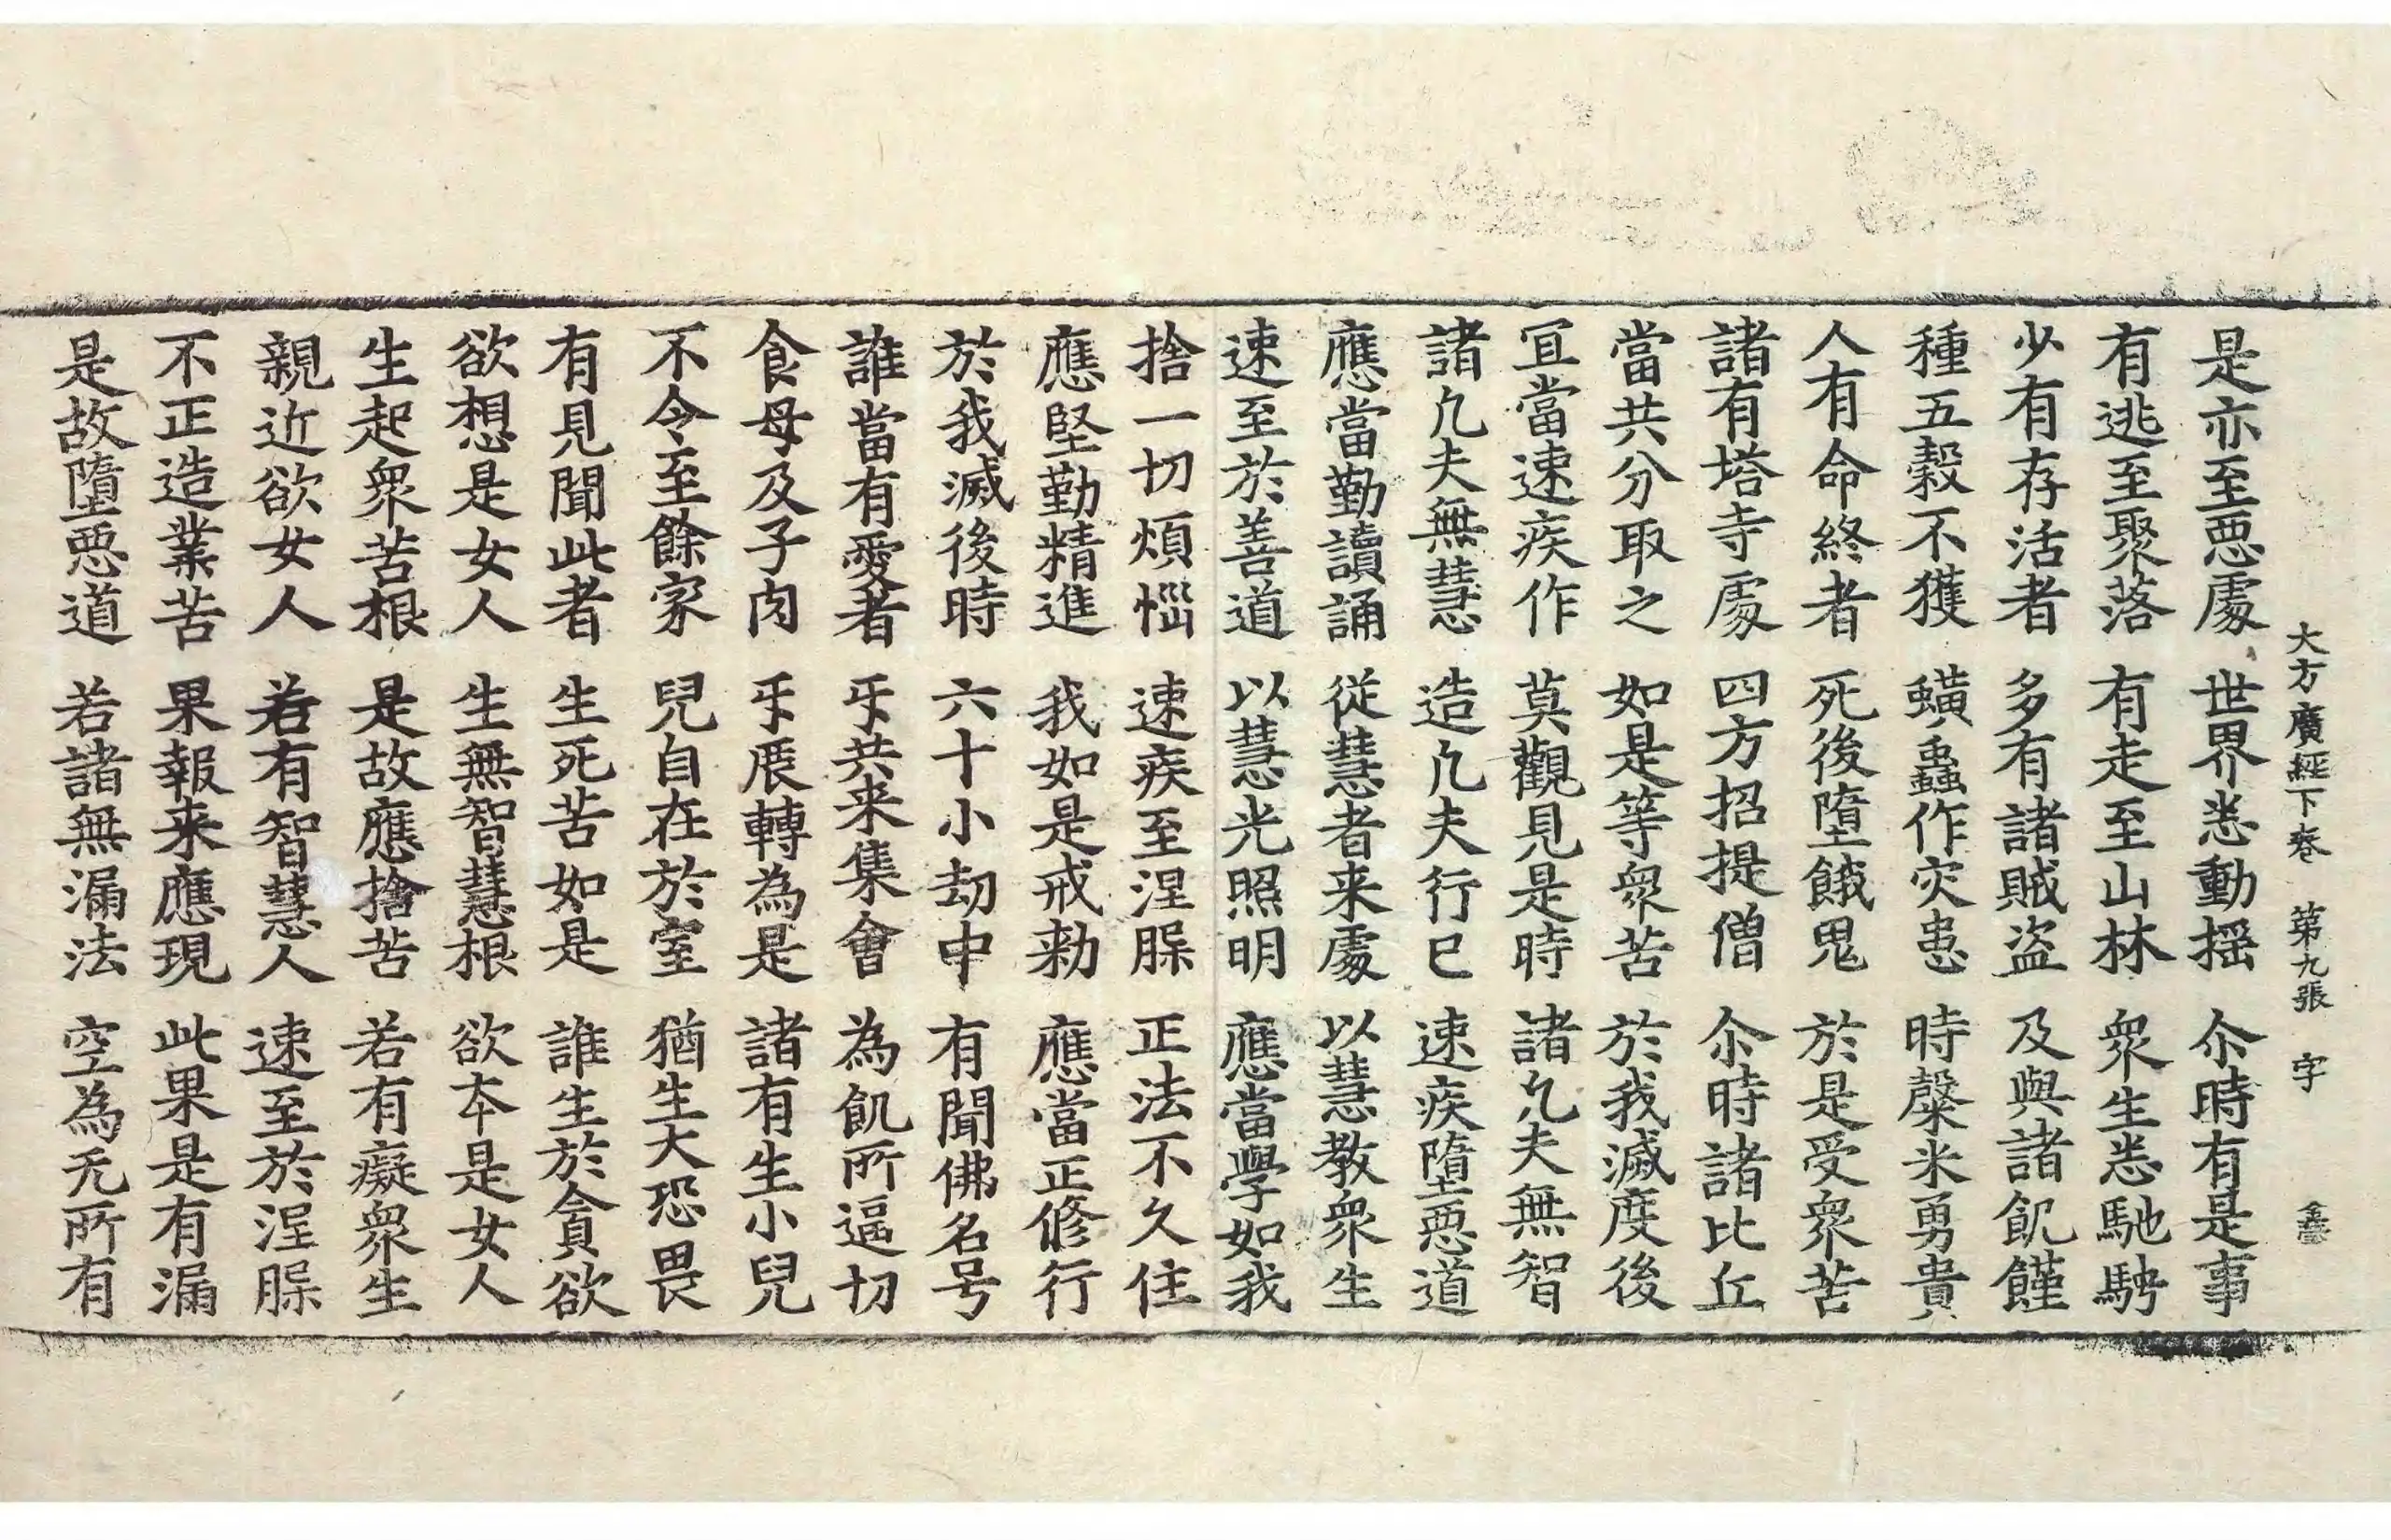 大方廣經下卷 第九張 字
是亦至惡處 世界悉動搖 尒時有是事
有逃至聚落 有走至山林 衆生悉馳騁
少有存活者 多有諸賊盜 及與諸飢饉
種五穀不獲 蟥蟲作灾患 時糳米勇貴
人有命終者 死後墮餓鬼 於是受衆苦
諸有塔寺處 四方招提僧 尒時諸比丘
當共分取之 如是等衆苦 於我滅度後
冝當速疾作 莫觀見是時 諸凢夫無智
諸凢夫無慧 造凢夫行已 速疾墮惡道
應當勤讀誦 從慧者来處 以慧教衆生
速至於善道 以慧光照明 應當學如我
捨一切煩惱 速疾至涅槃 正法不久住
應堅勤精進 我如是戒勑 應當正修行
於我滅後時 六十小劫中 有聞佛名号
誰當有愛者 㸦共来集會 為飢所逼切
食母及子肉 㸦展轉為是 諸有生小兒
不令至餘家 兒自在於室 猶生大恐畏
有見聞此者 生死苦如是 誰生於貪欲
欲想是女人 生無智慧根 欲夲是女人
生起衆苦根 是故應捨苦 若有癡衆生
親近欲女人 若有智慧人 速至於涅槃
不正造業苦 果報来應現 此果是有漏
是故墮惡道 若諸無漏法 空為无所有